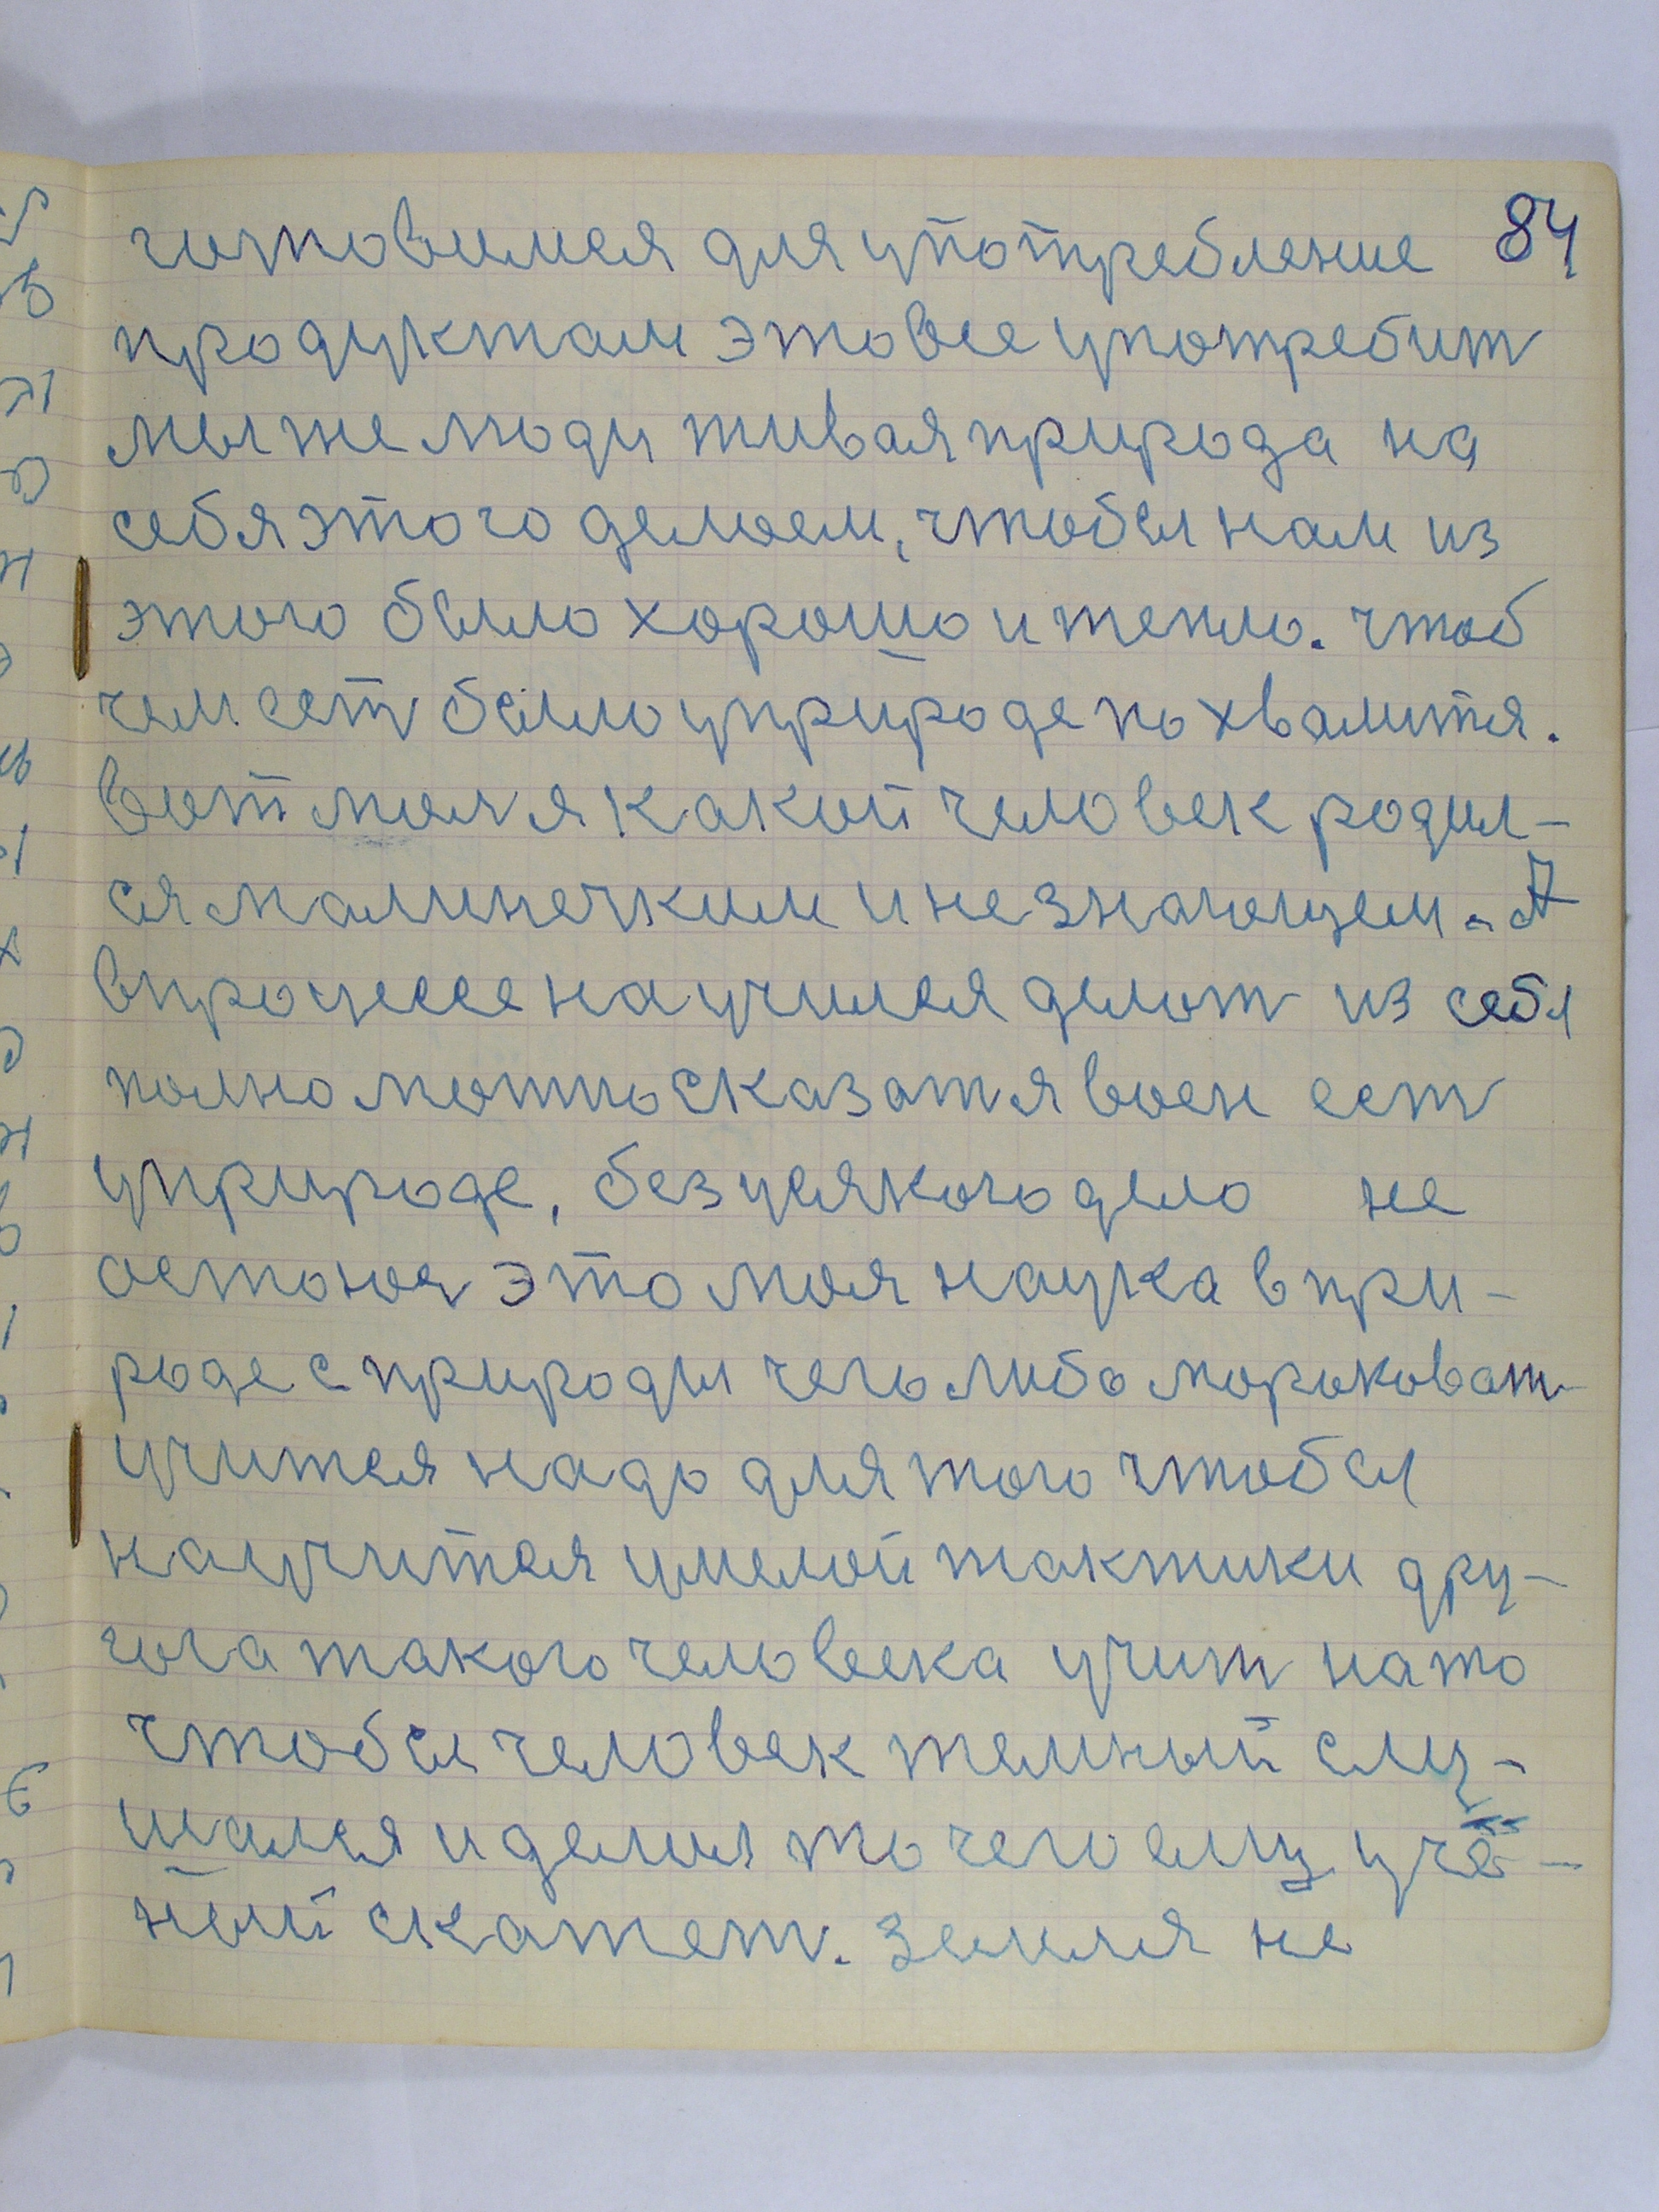 84
готовимся для употребление
продуктам это все употребит
мы же люди живая природа на
себя этого делоем, чтобы нам из
этого было хорошо и тепло. чтоб
чем ест было у природе похвалится.
вот мол я какой человек родил-
ся малинечким и не знающем. А
в процессе научился делот из себя
полно можно сказат я воен ест
у природе, без усякого дело не
остоюся это моя наука в при-
роде с природы чего либо мороковат
учится надо для того чтобы
научится умелой тактики дру-
гога такого человека учит на то
чтобы человек темный слу-
шался и делил то чего ему учё-
ный скажет. Земля не